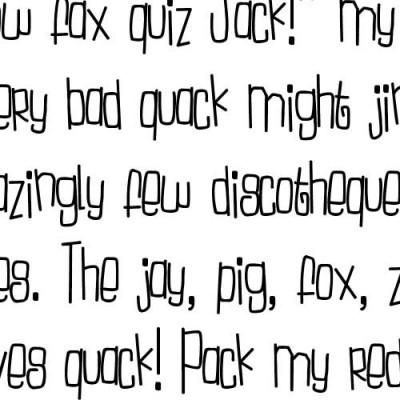 ow fox quiz Jack!" my
ery bad quack might jin
azingly few discotheque
es. The jay, pig, fox, z
ves quack! Pack my red